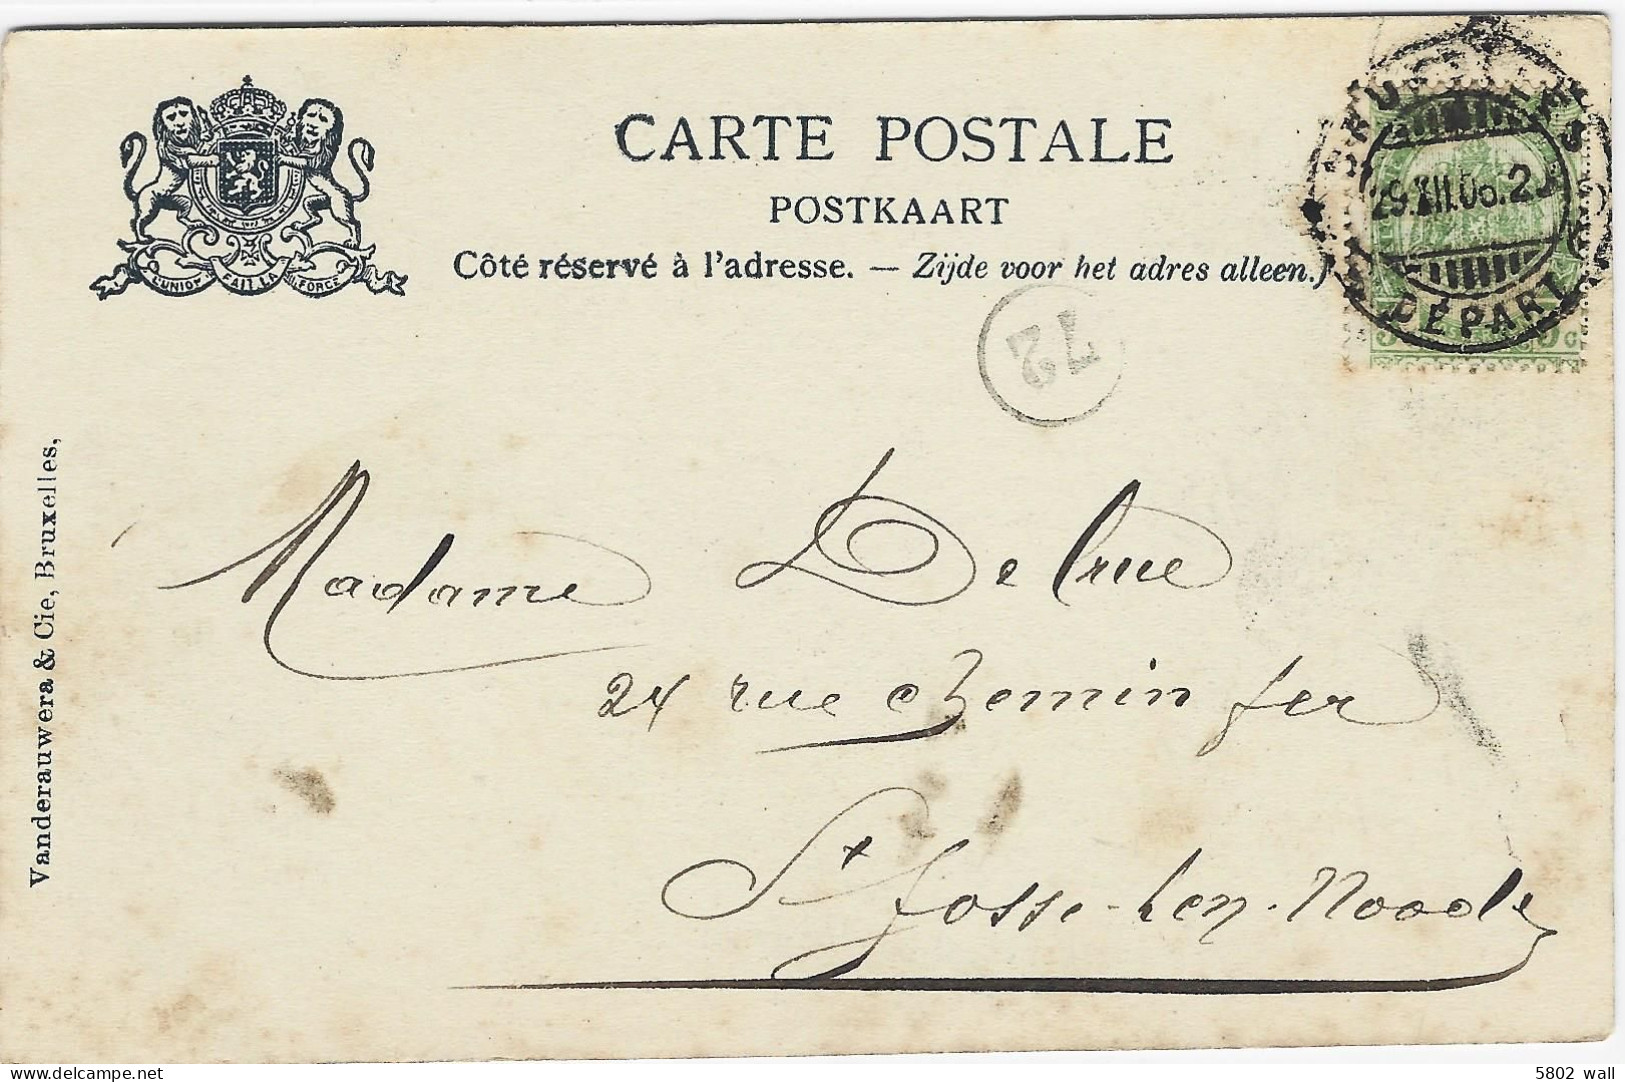 CARTE POSTALE
POSTKAART
Côté réservé à l'adresse. — Zijde voor het adres alleen.
L'UNION FAIT LA FORCE
BRUXELLES
29.XII.05.2
DÉPART
5 c
72
Madame Delrue
24 rue chemin fer
St Josse-ten-Noode
Vanderauwera & Cie, Bruxelles,
5802 wall